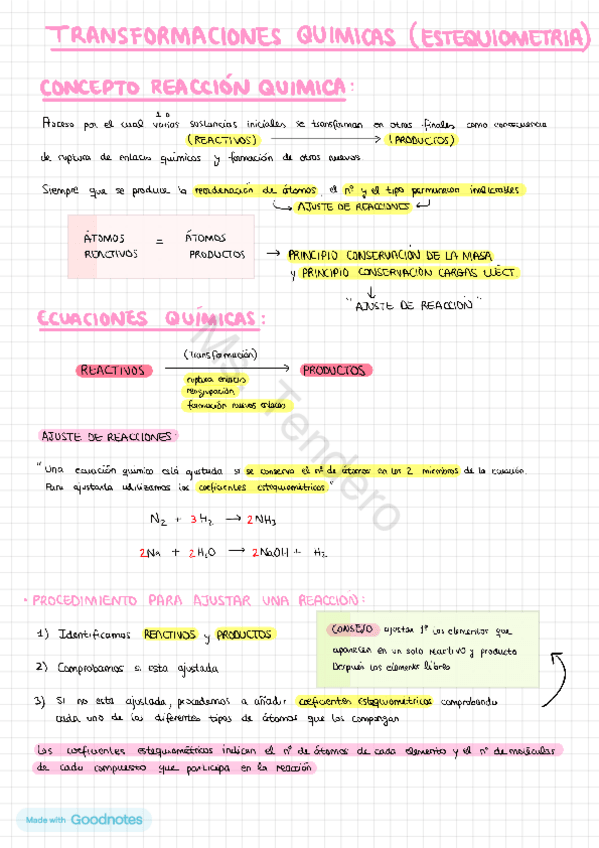 TRANSFORMACIONES QUIMICAS (ESTEQUIOMETRIA)
CONCEPTO REACCIÓN QUIMICA:
1 o
Proceso por el cual varias sustancias iniciales se transforman en otras finales como consecuencia
(REACTIVOS) → (PRODUCTOS)
de ruptura de enlaces químicos y formación de otros nuevos
Siempre que se produce la reordenación de átomos, el nº y el tipo permanecen inalterables
→ AJUSTE DE REACCIONES ←
ÁTOMOS REACTIVOS = ÁTOMOS PRODUCTOS
→ PRINCIPIO CONSERVACIÓN DE LA MASA
y PRINCIPIO CONSERVACIÓN CARGAS ELÉCT
↓
"AJUSTE DE REACCIÓN"
ECUACIONES QUÍMICAS:
(transformación)
REACTIVOS → PRODUCTOS
ruptura enlaces
reagrupación
formación nuevos enlaces
AJUSTE DE REACCIONES:
"Una ecuación química está ajustada si se conserva el nº de átomos en los 2 miembros de la ecuación.
Para ajustarla utilizamos los coeficientes estequiométricos"
N₂ + 3H₂ → 2NH₃
2Na + 2H₂O → 2NaOH + H₂
· PROCEDIMIENTO PARA AJUSTAR UNA REACCIÓN:
1) Identificamos REACTIVOS y PRODUCTOS
2) Comprobamos si esta ajustada
CONSEJO ajustar 1º los elementos que
aparecen en un solo reactivo y producto
Después los elementos libres
3) Si no esta ajustada, procedemos a añadir coeficientes estequiométricos comprobando
cada uno de los diferentes tipos de átomos que los compongan
Los coeficientes estequiométricos indican el nº de átomos de cada elemento y el nº de moléculas
de cada compuesto que participa en la reacción
Ms. Tendero
Made with Goodnotes